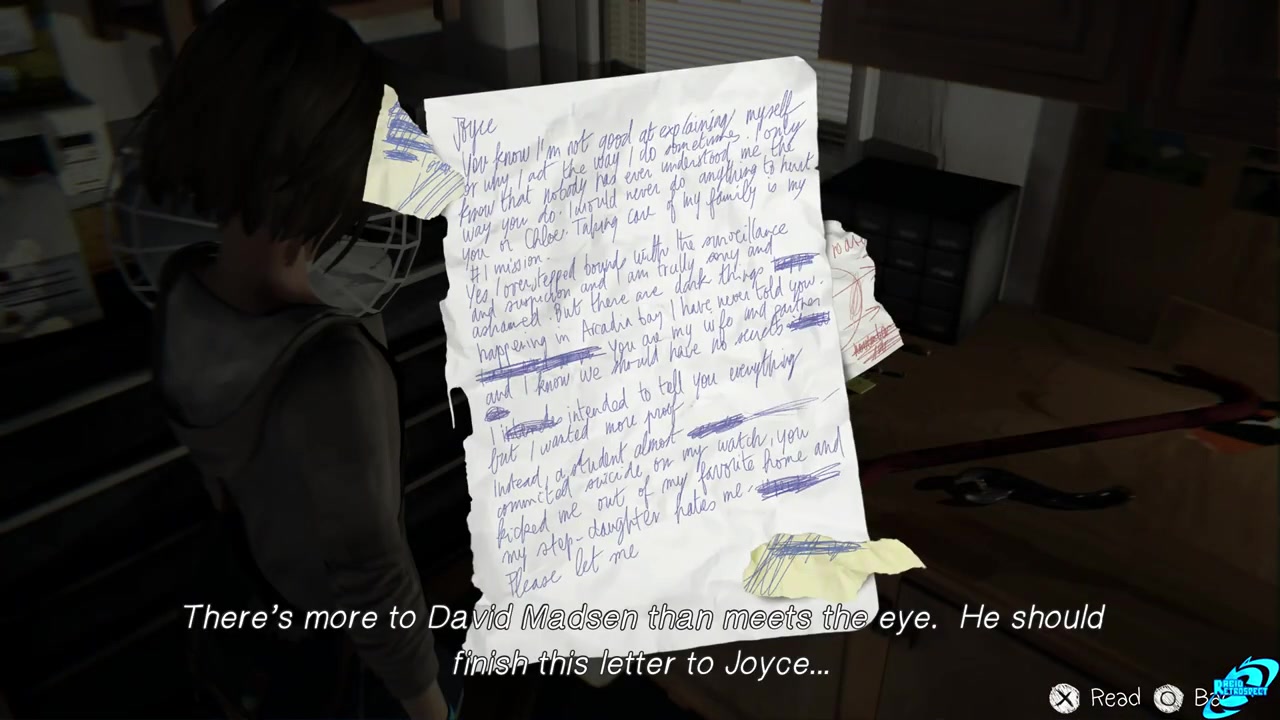 Joyce
You know I'm not good at explaining myself
or why I act the way I do sometime. I only
know that nobody has ever understood me the
way you do. I would never do anything to hurt
you or Chloe. Taking care of my family is my
#1 mission.
Yes, I overstepped bounds with the surveillance
and suspicion and I am trully sorry and
ashamed. But there are dark things
happening in Arcadia bay I have never told you.
You are my wife and partner
and I know we should have no secrets
I intended to tell you everything
but I wanted more proof.
Instead, a student almost
committed suicide on my watch, you
kicked me out of my favorite home and
my step-daughter hates me.
Please let me
There's more to David Madsen than meets the eye. He should
finish this letter to Joyce...
Read
RETROSPECT